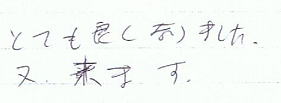 とても良くなりました.
又、来ます.